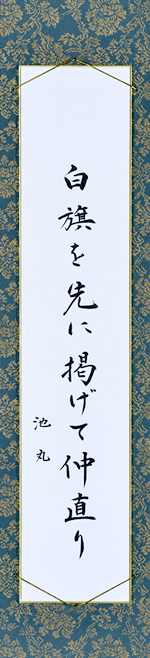 白旗を先に掲げて仲直り
池丸